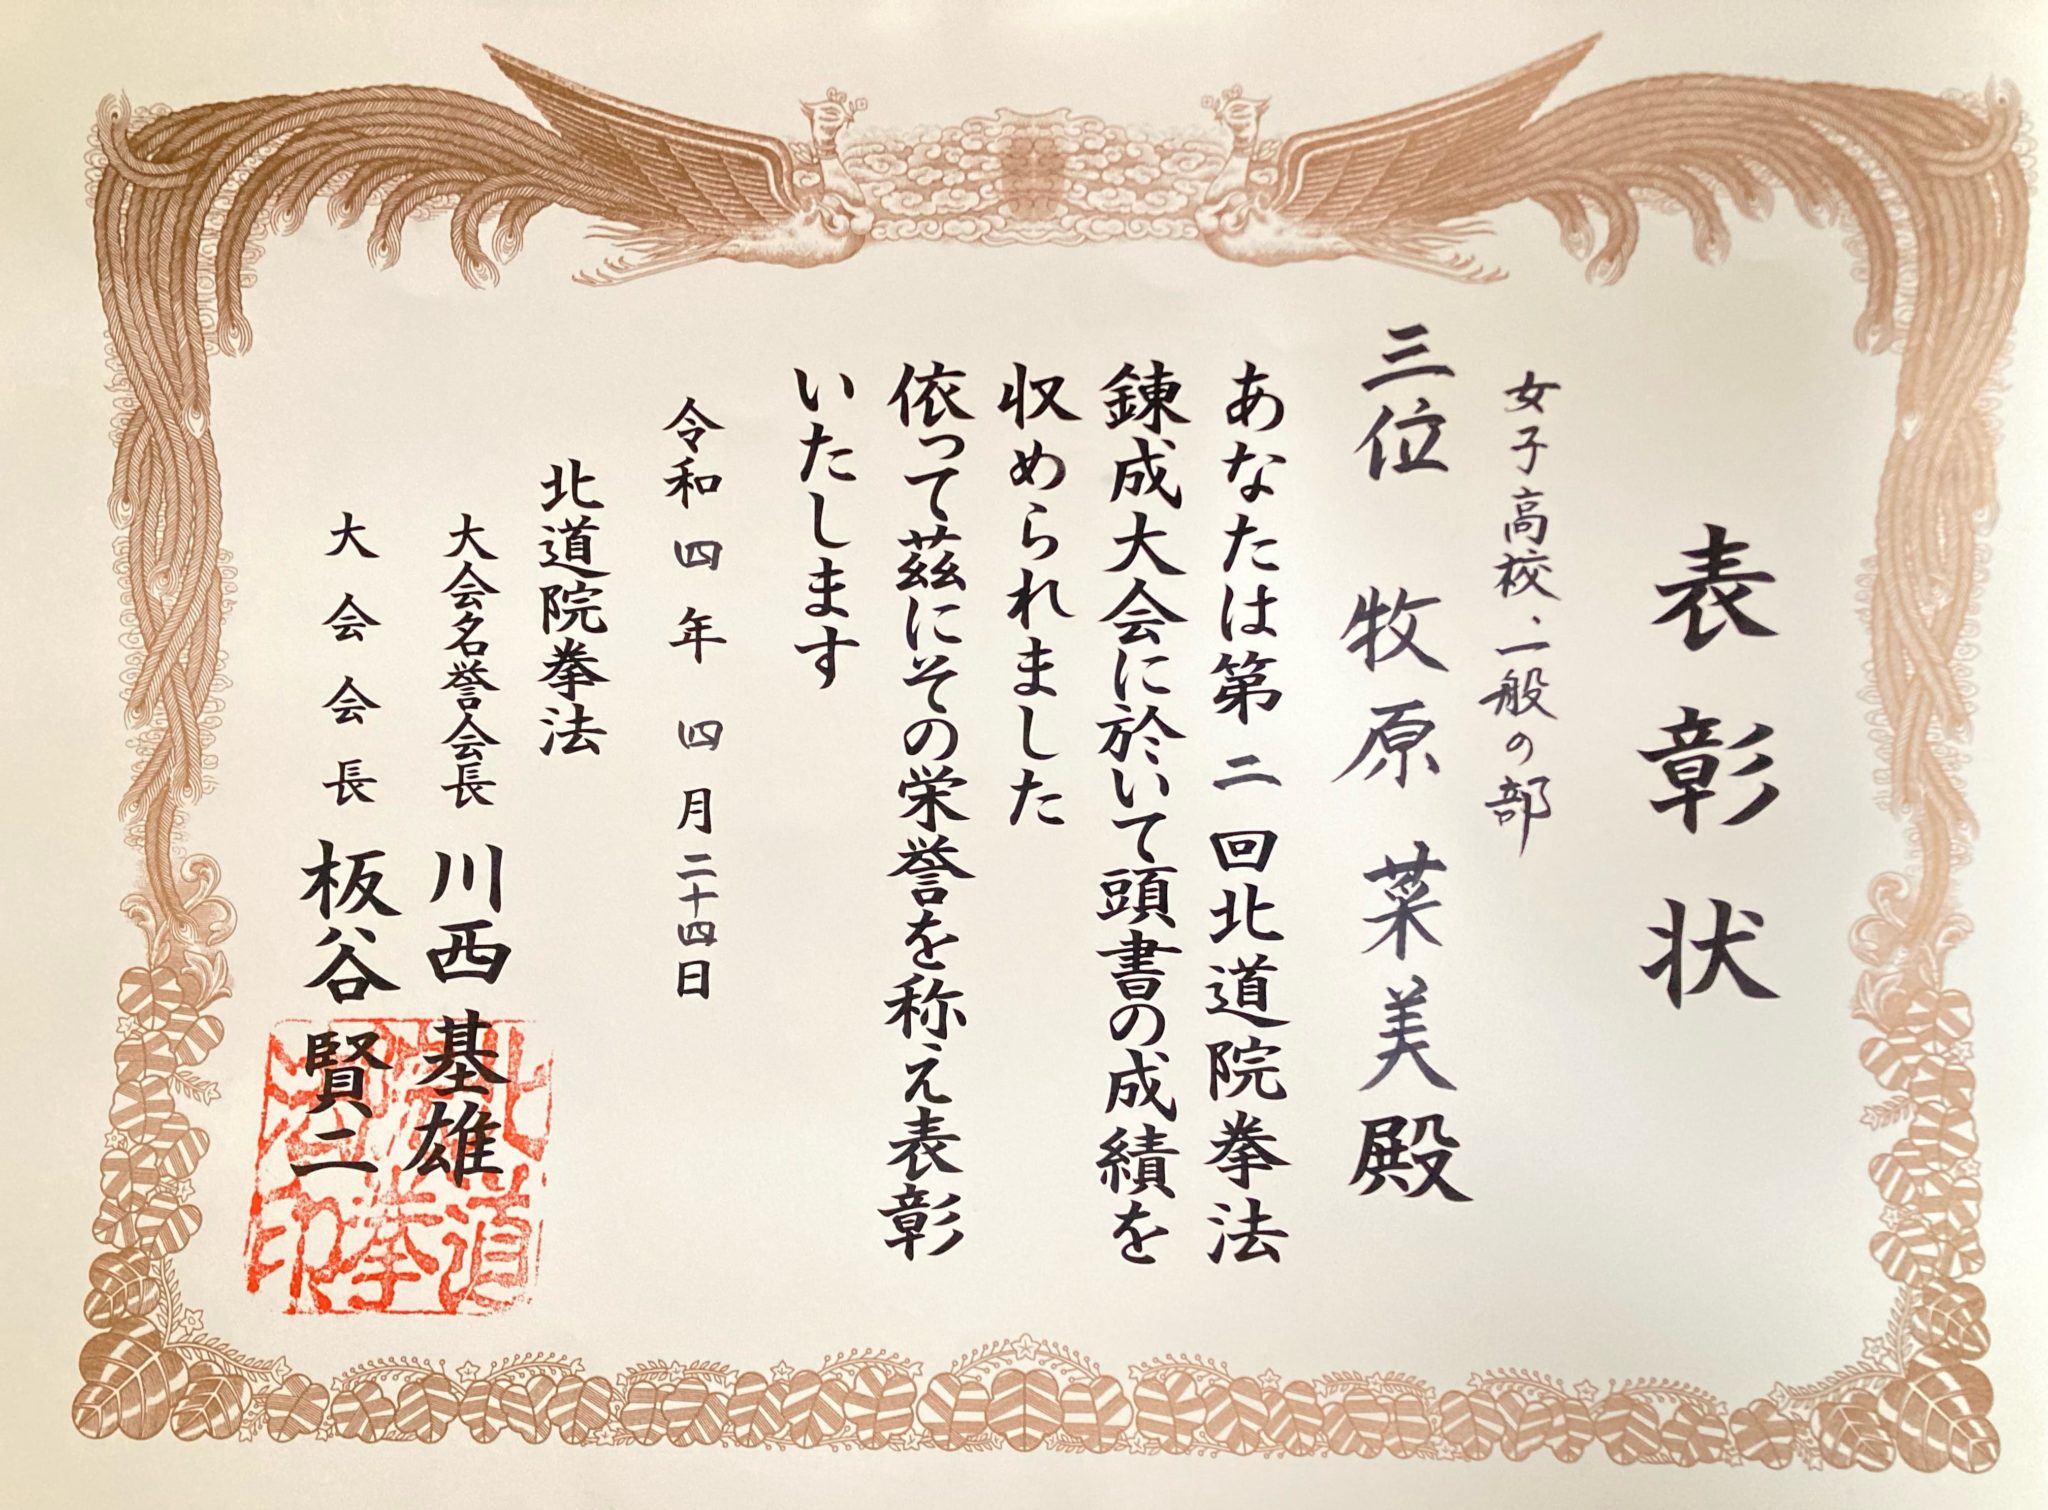 表彰状
女子高校、一般の部
三位 牧原 菜美 殿
あなたは第二回北道院拳法
錬成大会に於いて頭書の成績を
収められました
依って茲にその栄誉を称え表彰
いたします
令和四年四月二十四日
北道院拳法
大会名誉会長 川西基雄
大会会長 板谷賢二
北道
院拳
法印